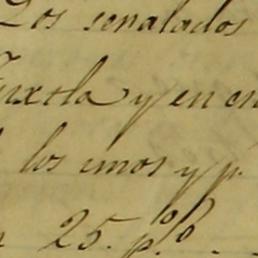 Los senalados
Tuxtla y en en
los unos y p.
25. p%.